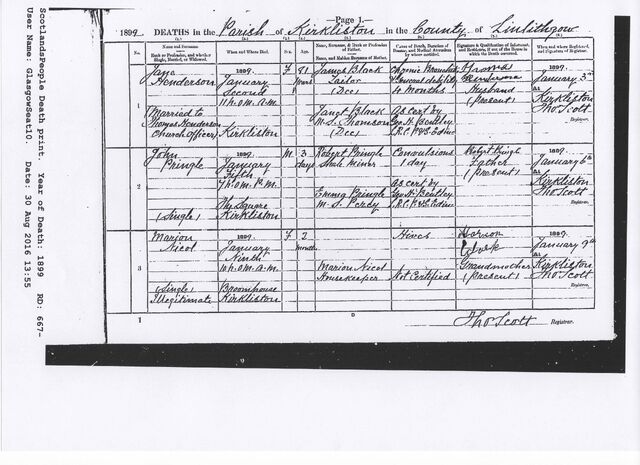 —Page 1.—
1899. DEATHS in the Parish of Kirkliston in the County of Linlithgow
(1.) (2.) (3.) (4.) (5.) (6.) (7.) (8.)
No.
Name and Surname
Rank or Profession, and whether Single, Married, or Widowed.
When and Where Died.
Sex.
Age.
Name, Surname, & Rank or Profession of Father.
Name, and Maiden Surname of Mother.
Cause of Death, Duration of Disease, and Medical Attendant by whom certified.
Signature & Qualification of Informant, and Residence, if out of the House in which the Death occurred.
When and where Registered, and Signature of Registrar.
1
Jane
Henderson
(Married to
Thomas Henderson
Church Officer)
1899.
January
Second
11 h. 0 m. A.M.
Kirkliston
F
81
years
James Black
Tailor
(Dec)
Janet Black
M.S. Thomson
(Dec)
Chronic Bronchitis
4 months
As cert by
Geo. H. Bentley
Thomas
Henderson
Husband
(Present)
1899.
January 3rd
At
Kirkliston
Thos Scott
Registrar.
2
John
Pringle
(Single)
1899.
January
Fifth
7 h. 0 m. P.M.
The Square
Kirkliston
M.
3
days
Robert Pringle
Shale Miner
Emma Pringle
M.S. Perdy
Convulsions
1 day
As cert by
Geo. H. Bentley
Robert Pringle
Father
(Present)
1899.
January 6th
At
Kirkliston
Thos Scott
Registrar.
3
Marion
Nicol
(Single)
Illegitimate
1899.
January
Ninth
10 h. 0 m. A.M.
Broomhouse
Kirkliston
F
2
months
Marion Nicol
Housekeeper
Hives
Not Certified
Clark
Grandmother
(Present)
1899.
January 9th
At
Kirkliston
Thos Scott
Registrar.
1
Thos Scott Registrar.
ScotlandsPeople Death print. Year of Death: 1899 RD: 667-
User Name: GlasgowSeat10. Date: 30 Aug 2016 13:55